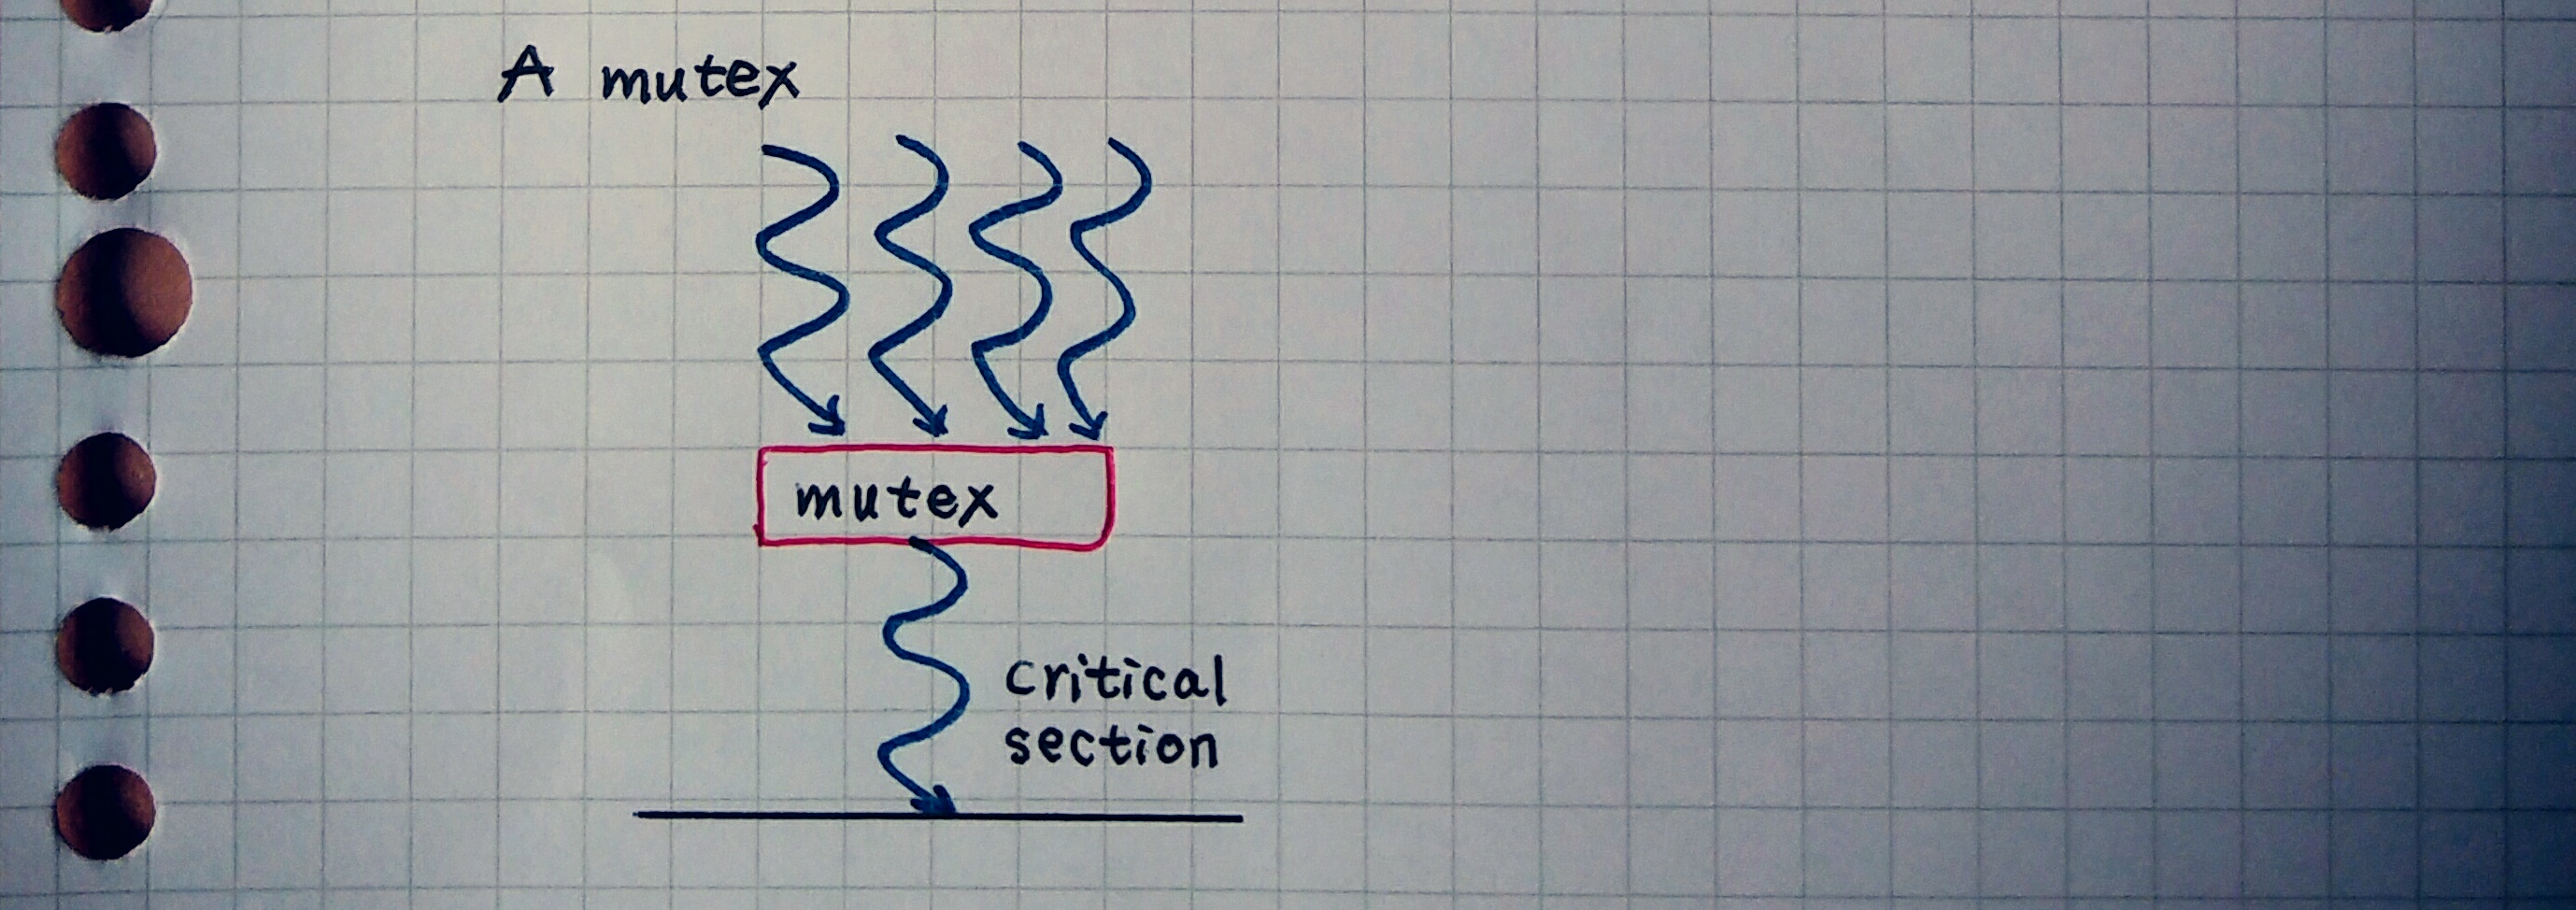 A mutex
mutex
critical
section